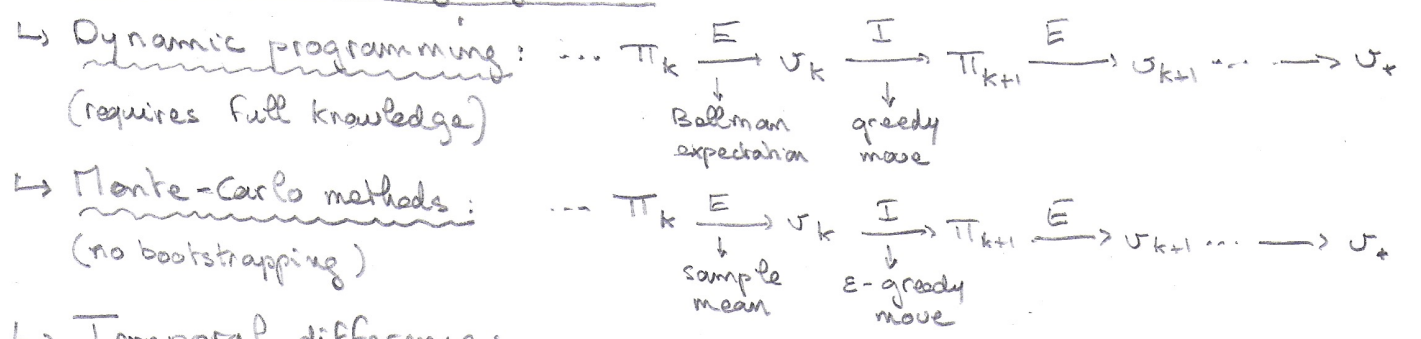 ↳ Dynamic programming: ... π_k —E→ v_k —I→ π_{k+1} —E→ v_{k+1} ... → v_*
(requires full knowledge) ↓ Bellman expectation ↓ greedy move
↳ Monte-Carlo methods: ... π_k —E→ v_k —I→ π_{k+1} —E→ v_{k+1} ... → v_*
(no bootstrapping) ↓ sample mean ↓ ε-greedy move